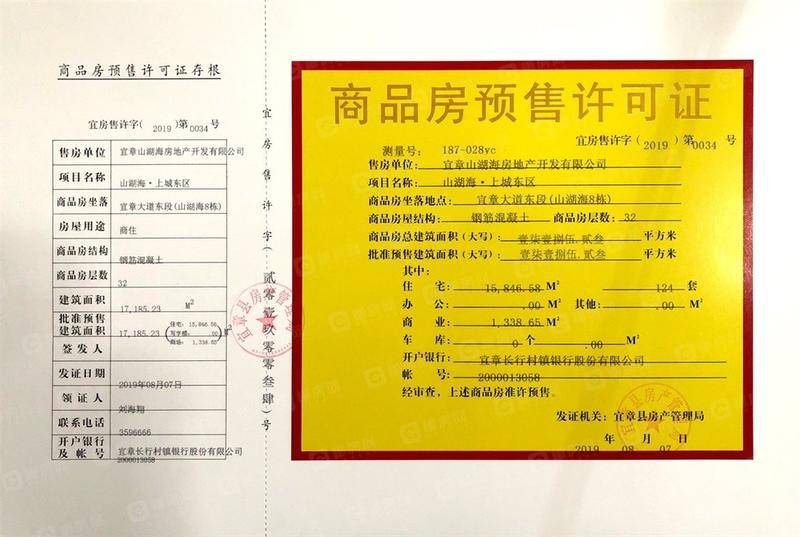 商品房预售许可证存根
宜房售许字( 2019 )第0034 号
售房单位 宜章山湖海房地产开发有限公司
项目名称 山湖海·上城东区
商品房坐落 宜章大道东段(山湖海8栋)
房屋用途 商住
商品房结构 钢筋混凝土
商品房层数 32
建筑面积 17,185.23 M²
批准预售建筑面积 17,185.23 (住宅: 15,846.58 写字楼: .00 商场: 1,338.65) M²
签发人
发证日期 2019年08月07日
领证人 刘海翔
联系电话 3596666
开户银行及帐号 宜章长行村镇银行股份有限公司
2000013058
宜房售许字(贰零壹玖零零叁肆)号
宜章县房产管理局
商品房预售许可证
宜房售许字( 2019 )第0034 号
测量号: 187-028yc
售房单位: 宜章山湖海房地产开发有限公司
项目名称: 山湖海·上城东区
商品房坐落地点: 宜章大道东段(山湖海8栋)
商品房屋结构: 钢筋混凝土 商品房层数: 32
商品房总建筑面积(大写): 壹柒壹捌伍.贰叁 平方米
批准预售建筑面积(大写): 壹柒壹捌伍.贰叁 平方米
其中:
住宅: 15,846.58 M² 124 套
办公: .00 M² 其他: .00 M²
商业: 1,338.65 M²
车库: 0 个 .00 M²
开户银行: 宜章长行村镇银行股份有限公司
帐号: 2000013058
经审查,上述商品房准许预售。
发证机关: 宜章县房产管理局
2019 年 08 月 07 日